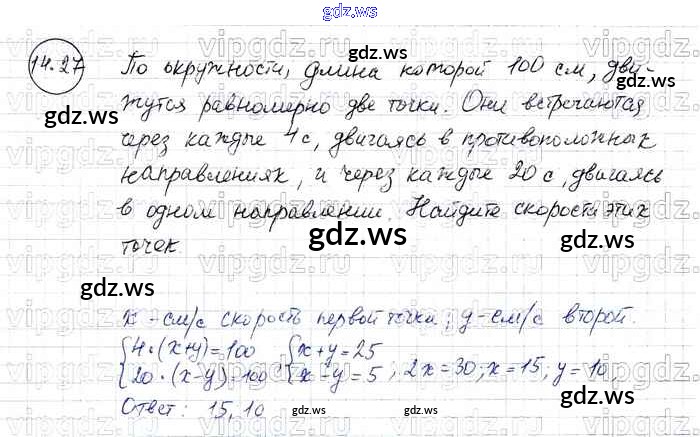 gdz.ws
14.27 По окружности, длина которой 100 см, дви-
жутся равномерно две точки. Они встречаются
через каждые 4 с, двигаясь в противоположных
направлениях, и через каждые 20 с, двигаясь
в одном направлении. Найдите скорости этих
точек
x - см/с скорость первой точки; y - см/с второй.
{4·(x+y)=100 {x+y=25
{20·(x-y)=100 {x-y=5; 2x=30; x=15; y=10.
Ответ: 15, 10
gdz.ws